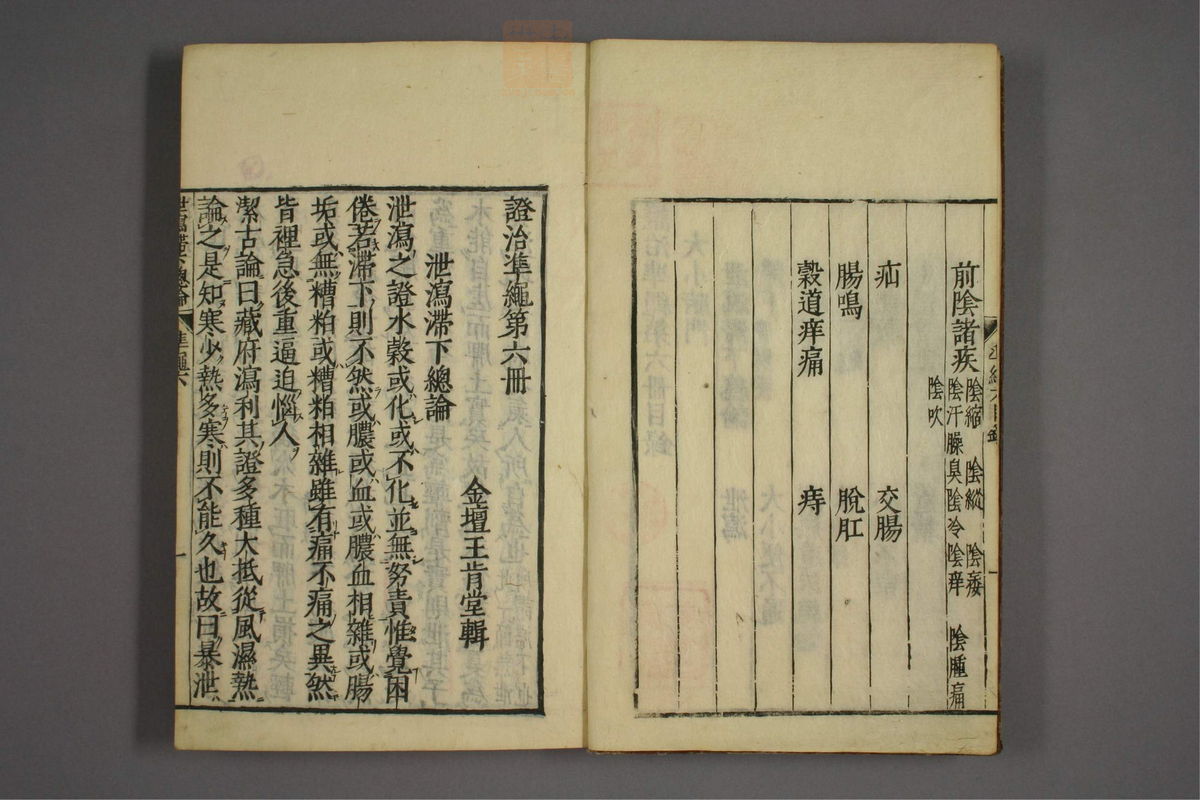 前陰諸疾 陰縮 陰縱 陰痿
陰汗臊臭陰冷陰痒 陰腫痛
陰吹
疝 交腸
腸鳴 脫肛
穀道痒痛 痔
證治準繩第六冊
金壇王肯堂輯
泄瀉滯下總論
泄瀉之證水穀或化或不化並無努責惟覺困
倦若滯下則不然或膿或血或膿血相雜或腸
垢或無糟粕或糟粕相雜雖有痛不痛之異然
皆裡急後重逼迫惱人
潔古論曰藏府瀉利其證多種大抵從風濕熱
論之是知寒少熱多寒則不能久也故曰暴泄
泄瀉滯下總論 準繩六 一